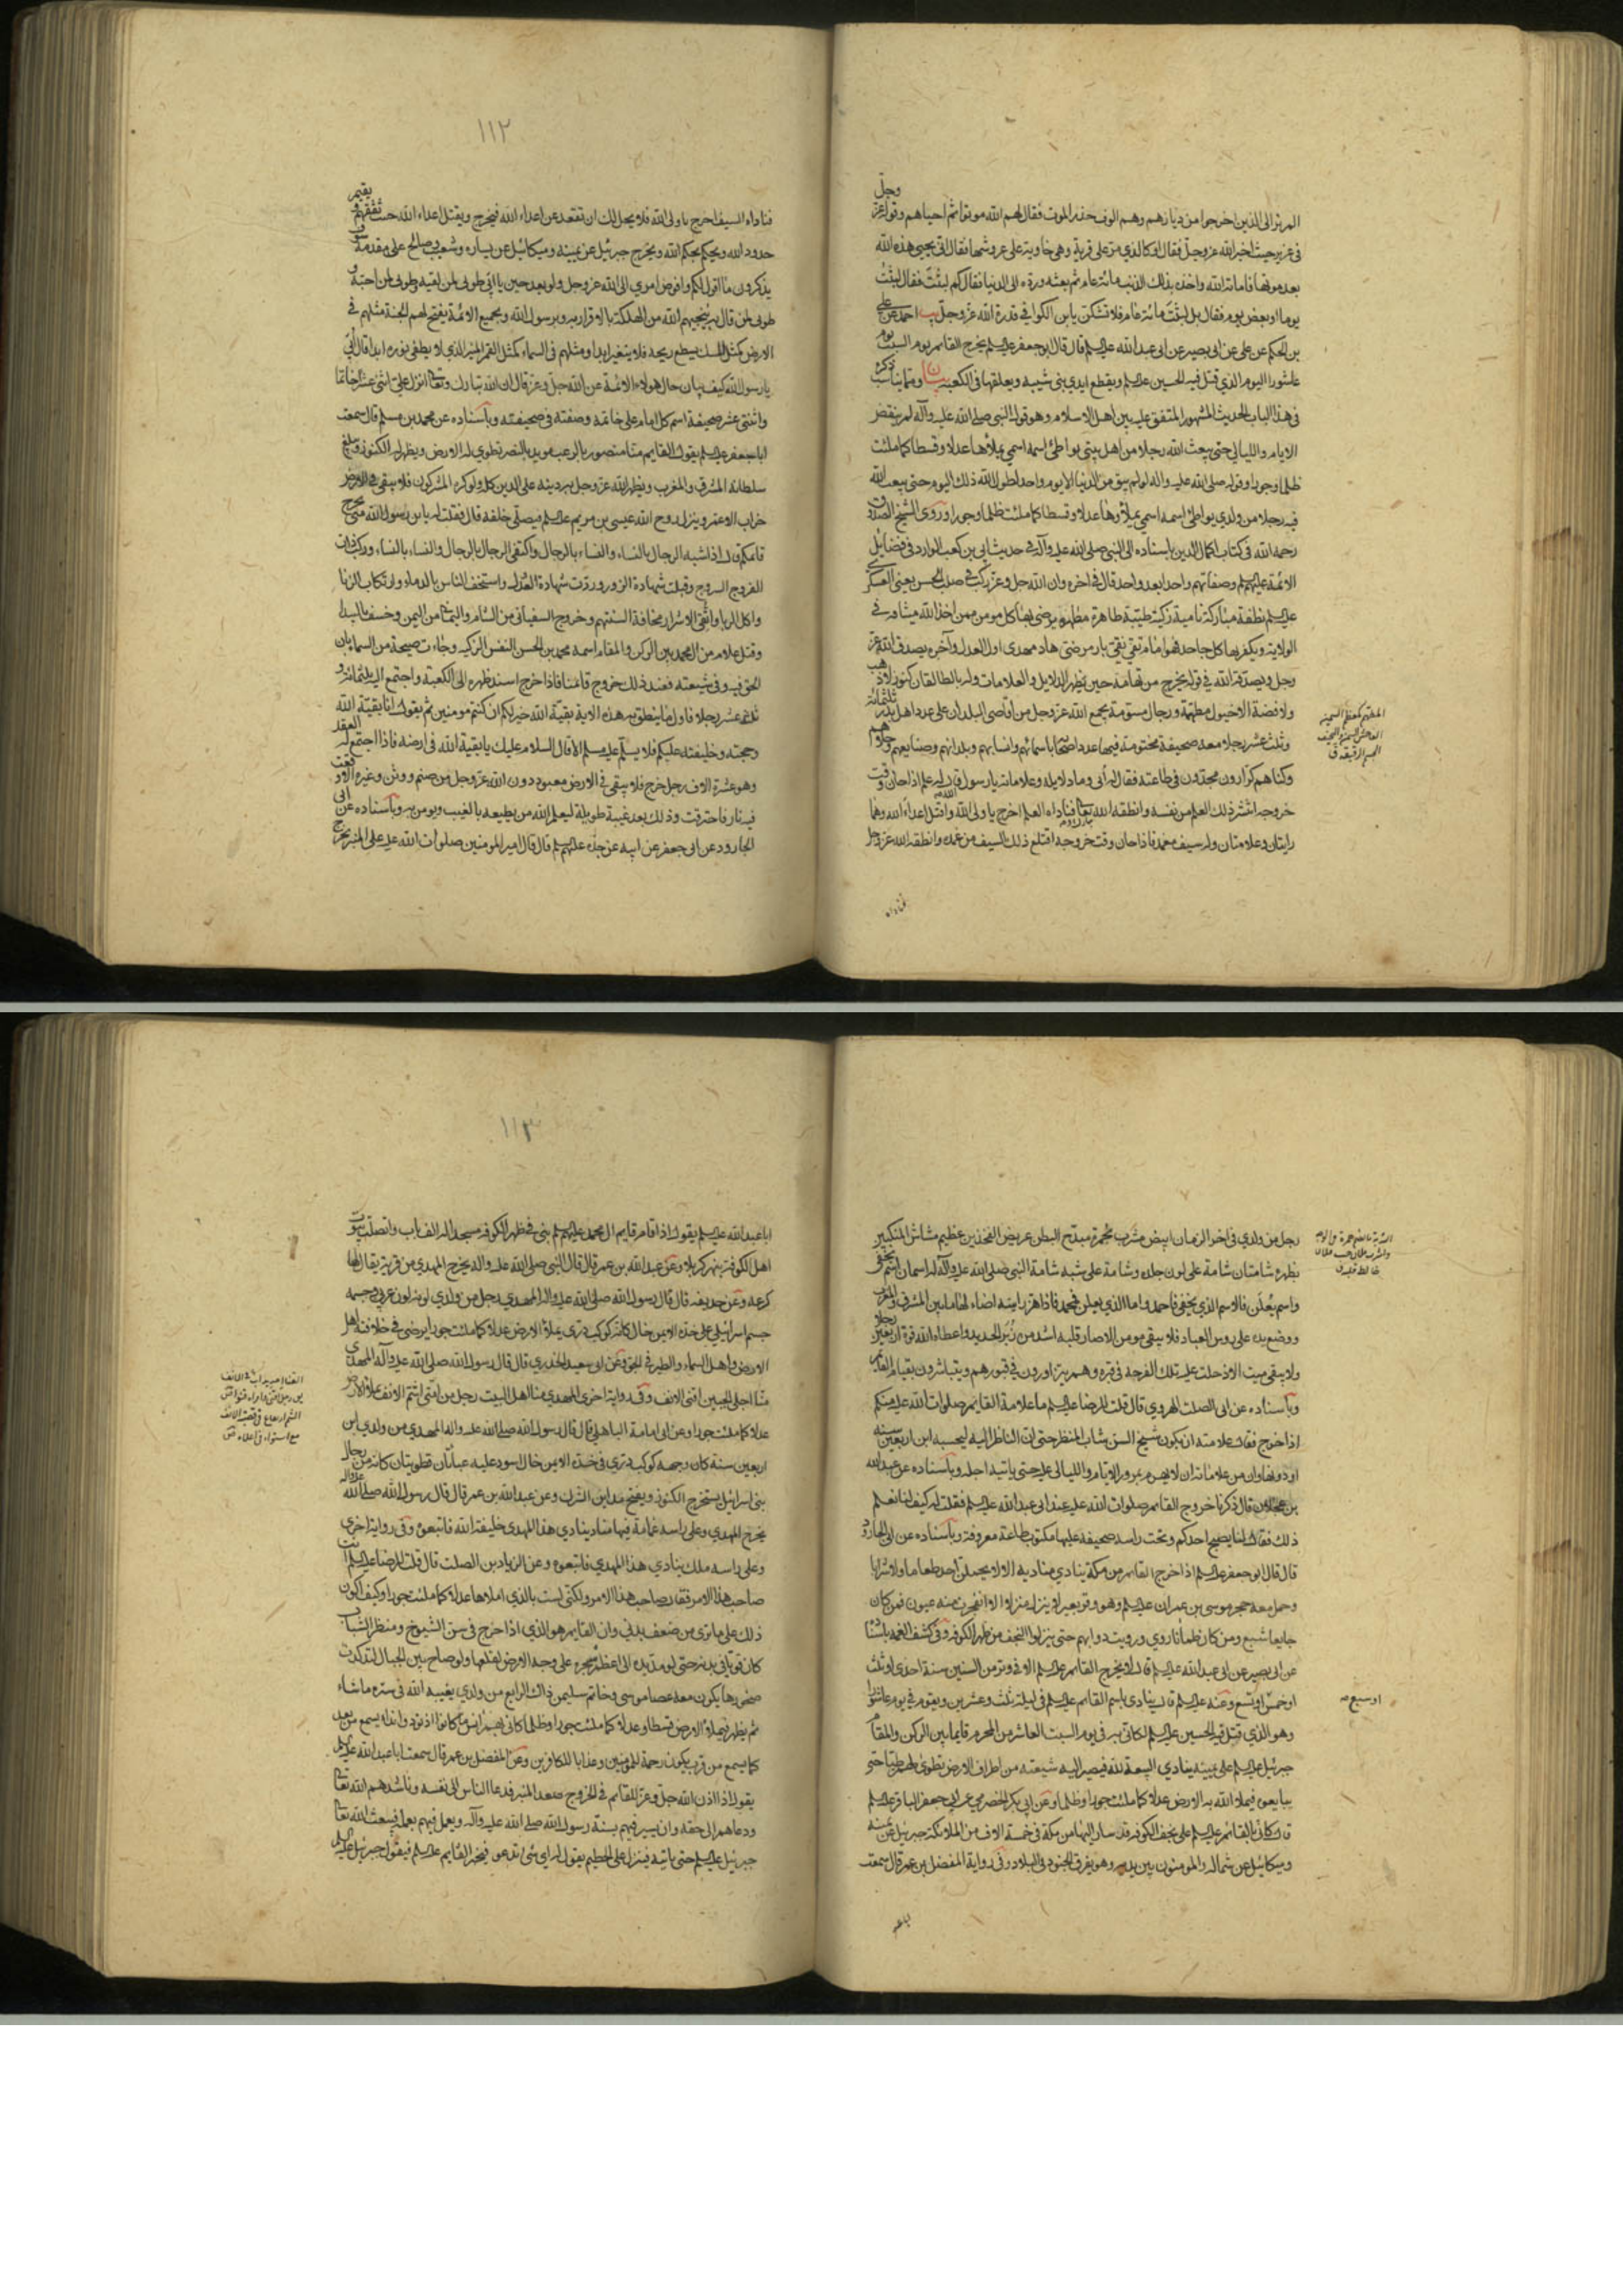 الم تر الى الذين اخرجوا من ديارهم وهم الوف حذر الموت فقال لهم الله موتوا ثم احياهم وقوله عز وجل
في عزير حيث اخبر الله عز وجل فقال او كالذي مر على قرية وهي خاوية على عروشها فقال انى يحيي هذه الله
بعد موتها فاماته الله واخذه بذلك الذنب مائة عام ثم بعثه ورده الى الدنيا فقال كم لبثت فقال لبثت
يوما او بعض يوم فقال بل لبثت مائة عام فلا تشكن يا بن الكوا في قدرة الله عز وجل احمد عن علي
بن الحكم عن علي عن ابي بصير عن ابي عبد الله عليه السلم قال قال ابو جعفر عليه السلم يخرج القائم يوم السبت يوم
عاشورا اليوم الذي قتل فيه الحسين عليه السلم ويقطع ايدي بني شيبه ويعلقها في الكعبه ومما يناسب ذكره
في هذا الباب الحديث المشهور المتفق عليه بين اهل الاسلام وهو قول النبي صلى الله عليه وآله لم ينقض
الايام والليالي حتى يبعث الله رجلا من اهل بيتي يواطئ اسمه اسمي يملأها عدلا وقسطا كما ملئت
ظلما وجورا وقوله صلى الله عليه واله لو لم يبق من الدنيا الا يوم واحد لطول الله ذلك اليوم حتى يبعث الله
فيه رجلا من ولدي يواطئ اسمه اسمي يملأوها عدلا وقسطا كما ملئت ظلما وجورا وروى الشيخ الصدوق
رحمه الله في كتاب اكمال الدين باسناده الى النبي صلى الله عليه وآله في حديث ابي بن كعب الوارد في فضايل
الائمة عليهم السلم وصفاتهم واحدا بعد واحد قال في اخره وان الله جل وعز ركب في صلب الحسن يعني العسكري
عليه السلم نطفة مباركة نامية زكية طيبة طاهرة مطهرة يرضى بها كل مومن ممن اخذ الله ميثاقه في
الولاية ويكفر بها كل جاحد فهو امام تقي نقي بار مرضي هاد مهدي اول العدل وآخره يصدق الله عز
وجل ويصدقه الله في قوله يخرج من تهامة حين يظهر الدلايل والعلامات وله بالطالقان كنوز لا ذهب
ولا فضة الا خيول مطهمة ورجال مسومة يجمع الله عز وجل من اقاصي البلدان على عدد اهل بدر ثلثمائة
وثلث عشر رجلا معه صحيفة مختومة فيها عدد اصحابه باسمائهم وانسابهم وبلدانهم وصنايعهم وحلاهم
وكناهم كرارون مجدون في طاعته فقال له ابي وما دلايله وعلاماته يا رسول الله قال له علم اذا حان وقت
خروجه انتشر ذلك العلم من نفسه وانطقه الله تعالى فناداه العلم اخرج يا ولي الله واقتل اعداء الله وهما
رايتان وعلامتان وله سيف مغمد فاذا حان وقت خروجه اقتلع ذلك السيف من غمده وانطقه الله عز وجل
فناداه
فناداه السيف اخرج يا ولي الله فلا يحل لك ان تقعد عن اعداء الله فيخرج ويقتل اعداء الله حيث ثقفهم ويقيم
حدود الله ويحكم بحكم الله ويخرج جبرئيل عن يمينه وميكائيل عن يساره وشعيب وصالح على مقدمه سوف
يذكرون ما اقول لكم وافوض امري الى الله عز وجل ولو بعد حين يا ابي طوبى لمن لقيه وطوبى لمن احبه و
طوبى لمن قال به ينجيهم الله من الهلكة بالاقرار به وبرسول الله وبجميع الائمة يفتح لهم الجنة مثلهم في
الارض كمثل المسك يسطع ريحه فلا يتغير ابدا ومثلهم في السماء كمثل القمر المنير الذي لا يطفى نوره ابدا قال ابي
يا رسول الله كيف بيان حال هولاء الائمة عن الله جل وعز قال ان الله تبارك وتعالى انزل علي اثني عشر خاتما
واثنتي عشر صحيفة اسم كل امام على خاتمه وصفته في صحيفته وباسناده عن محمد بن مسلم قال سمعت
ابا جعفر عليه السلم يقول القايم منا منصور بالرعب مويد بالنصر تطوي له الارض ويظهر له الكنوز ويبلغ
سلطانه المشرق والمغرب ويظهر الله عز وجل به دينه على الدين كله ولو كره المشركون فلا يبقى في الارض
خراب الا عمر وينزل روح الله عيسى بن مريم عليه السلم فيصلي خلفه قال فقلت له يا بن رسول الله متى يخرج
قائمكم قال اذا تشبه الرجال بالنساء والنساء بالرجال واكتفى الرجال بالرجال والنساء بالنساء وركب ذوات
الفروج السروج وقبلت شهادة الزور وردت شهادة العدل واستخف الناس بالدماء وارتكاب الزنا
واكل الربا واتقى الاشرار مخافة السنتهم وخروج السفياني من الشام واليماني من اليمن وخسف بالبيدا
وقتل غلام من آل محمد بين الركن والمقام اسمه محمد بن الحسن النفس الزكيه وجاءت صيحة من السماء بان
الحق فيه وفي شيعته فعند ذلك خروج قائمنا فاذا خرج اسند ظهره الى الكعبة واجتمع اليه ثلثمائة و
ثلثة عشر رجلا فاول ما ينطق به هذه الاية بقية الله خير لكم ان كنتم مومنين ثم يقول انا بقية الله
وحجته وخليفته عليكم فلا يسلم عليه مسلم الا قال السلام عليك يا بقية الله في ارضه فاذا اجتمع له العقد
وهو عشرة الاف رجل خرج فلا يبقى في الارض معبود دون الله عز وجل من صنم ووثن وغيره الا وقعت
فيه نار فاحترقت وذلك بعد غيبة طويلة ليعلم الله من يطيعه بالغيب ويومن به وباسناده عن ابي
الجارود عن ابي جعفر عن ابيه عن جده عليهم السلم قال قال امير المومنين صلوات الله عليه على المنبر يخرج
١١٢
رجل من ولدي في اخر الزمان ابيض مشرب بحمرة مبدح البطن عريض الفخذين عظيم مشاش المنكبين
بظهره شامتان شامة على لون جلده وشامة على شبه شامة النبي صلى الله عليه وآله له اسمان اسم يخفى
واسم يعلن فالاسم الذي يخفي فاحمد واما الذي يعلن فمحمد فاذا هز رايته اضاء لها ما بين المشرق والمغرب
ووضع يده على روس العباد فلا يبقى مومن الا صار قلبه اشد من زبر الحديد واعطاه الله قوة اربعين رجلا
ولا يبقى ميت الا دخلت عليه تلك الفرحة في قبره وهم يتزاورون في قبورهم ويتباشرون بقيام القائم
وباسناده عن ابي الصلت الهروي قال قلت للرضا عليه السلم ما علامة القائم صلوات الله عليه منكم
اذا خرج فقال علامته ان يكون شيخ السن شاب المنظر حتى ان الناظر اليه ليحسبه ابن اربعين سنه
او دونها وان من علاماته ان لا يهرم بمرور الايام والليالي عليه حتى ياتيه اجله وباسناده عن عبد الله
بن عجلان قال ذكرنا خروج القائم صلوات الله عليه عند ابي عبد الله عليه السلم فقلت له كيف لنا نعلم
ذلك فقال لنا يصبح احدكم وتحت راسه صحيفة عليها مكتوب طاعة معروفة وباسناده عن ابي الجارود
قال قال ابو جعفر عليه السلم اذا خرج القائم من مكة ينادي مناديه الا لا يحملن احد طعاما ولا شرابا
وحمل معه حجر موسى بن عمران عليه السلم وهو وقر بعير فلا ينزل منزلا الا انفجرت منه عيون فمن كان
جايعا شبع ومن كان ظمانا روي ورويت دوابهم حتى ينزلوا النجف من ظهر الكوفه وفي كشف الغمه باسناده
عن ابي بصير عن ابي عبد الله عليه السلم قال لا يخرج القائم عليه السلم الا في وتر من السنين سنة احدى او ثلث
او خمس او تسع وعنه عليه السلم قال ينادى باسم القائم عليه السلم في ليلة ثلث وعشرين ويقوم في يوم عاشورا
وهو الذي قتل فيه الحسين عليه السلم لكاني به في يوم السبت العاشر من المحرم قايما بين الركن والمقام
جبرئيل عليه السلم على يمينه ينادي البيعة لله فيصير اليه شيعته من اطراف الارض تطوى لهم طيا حتى
يبايعوه فيملا الله به الارض عدلا كما ملئت جورا وظلما وعن ابي بكر الحضرمي عن ابي جعفر الباقر عليه السلم
قال كاني بالقائم عليه السلم على نجف الكوفه قد سار اليها من مكة في خمسة الاف من الملائكة جبرئيل عن يمينه
وميكائيل عن شماله والمومنون بين يديه وهو يفرق الجنود في البلاد وفي رواية المفضل بن عمر قال سمعت
او سبع
ابا عبد الله عليه السلم يقول اذا قام قايم ال محمد عليهم السلم بني في ظهر الكوفه مسجدا له الف باب واتصلت بيوت
اهل الكوفة بنهر كربلا وعن عبد الله بن عمر قال قال النبي صلى الله عليه واله يخرج المهدي من قرية يقال لها
كرعه وعن حذيفه قال قال رسول الله صلى الله عليه واله المهدي رجل من ولدي لونه لون عربي وجسمه
جسم اسرائيلي على خده الايمن خال كانه كوكب دري يملاء الارض عدلا كما ملئت جورا يرضى في خلافته اهل
الارض واهل السماء والطير في الجو وعن ابي سعيد الخدري قال قال رسول الله صلى الله عليه وآله المهدي
منا اجلى الجبين اقنى الانف وفي رواية اخرى المهدي منا اهل البيت رجل من امتي اشم الانف يملا الارض
عدلا كما ملئت جورا وعن ابي امامة الباهلي قال قال رسول الله صلى الله عليه واله المهدي من ولدي ابن
اربعين سنة كان وجهه كوكب دري في خده الايمن خال اسود عليه عباءتان قطويتان كانه من رجال
بني اسرائيل يستخرج الكنوز ويفتح مداين الشرك وعن عبد الله بن عمر قال قال رسول الله صلى الله عليه واله
يخرج المهدي وعلى راسه غمامة فيها مناد ينادي هذا المهدي خليفة الله فاتبعوه وفي رواية اخرى
وعلى راسه ملك ينادي هذا المهدي فاتبعوه وعن الريان بن الصلت قال قلت للرضا عليه السلم انت
صاحب هذا الامر فقال انا صاحب هذا الامر ولكني لست بالذي املاها عدلا كما ملئت جورا وكيف اكون
ذلك على ما ترى من ضعف بدني وان القايم هو الذي اذا خرج في سن الشيوخ ومنظر الشباب
كان قويا في بدنه حتى لو مد يده الى اعظم شجره على وجه الارض لقلعها ولو صاح بين الجبال لتدكدكت
صخورها يكون معه عصا موسى وخاتم سليمن ذاك الرابع من ولدي يغيبه الله في ستره ما شاء
ثم يظهر فيملاء الارض قسطا وعدلا كما ملئت جورا وظلما كاني بهم انس ما كانوا اذ نودوا نداء يسمع من بعد
كما يسمع من قرب يكون رحمة للمومنين وعذابا للكافرين وعن المفضل بن عمر قال سمعت ابا عبد الله عليه السلم
يقول اذا اذن الله جل وعز للقائم في الخروج صعد المنبر فدعا الناس الى نفسه وناشدهم الله تعالى
ودعاهم الى حقه وان يسير فيهم بسنة رسول الله صلى الله عليه وآله ويعمل فيهم بعمله فيبعث الله تعالى
جبرئيل عليه السلم حتى ياتيه فينزل على الحطيم يقول له اي شئ تدعو فيخبره القايم عليه السلم فيقول جبرئيل عليه السلم
١١٣